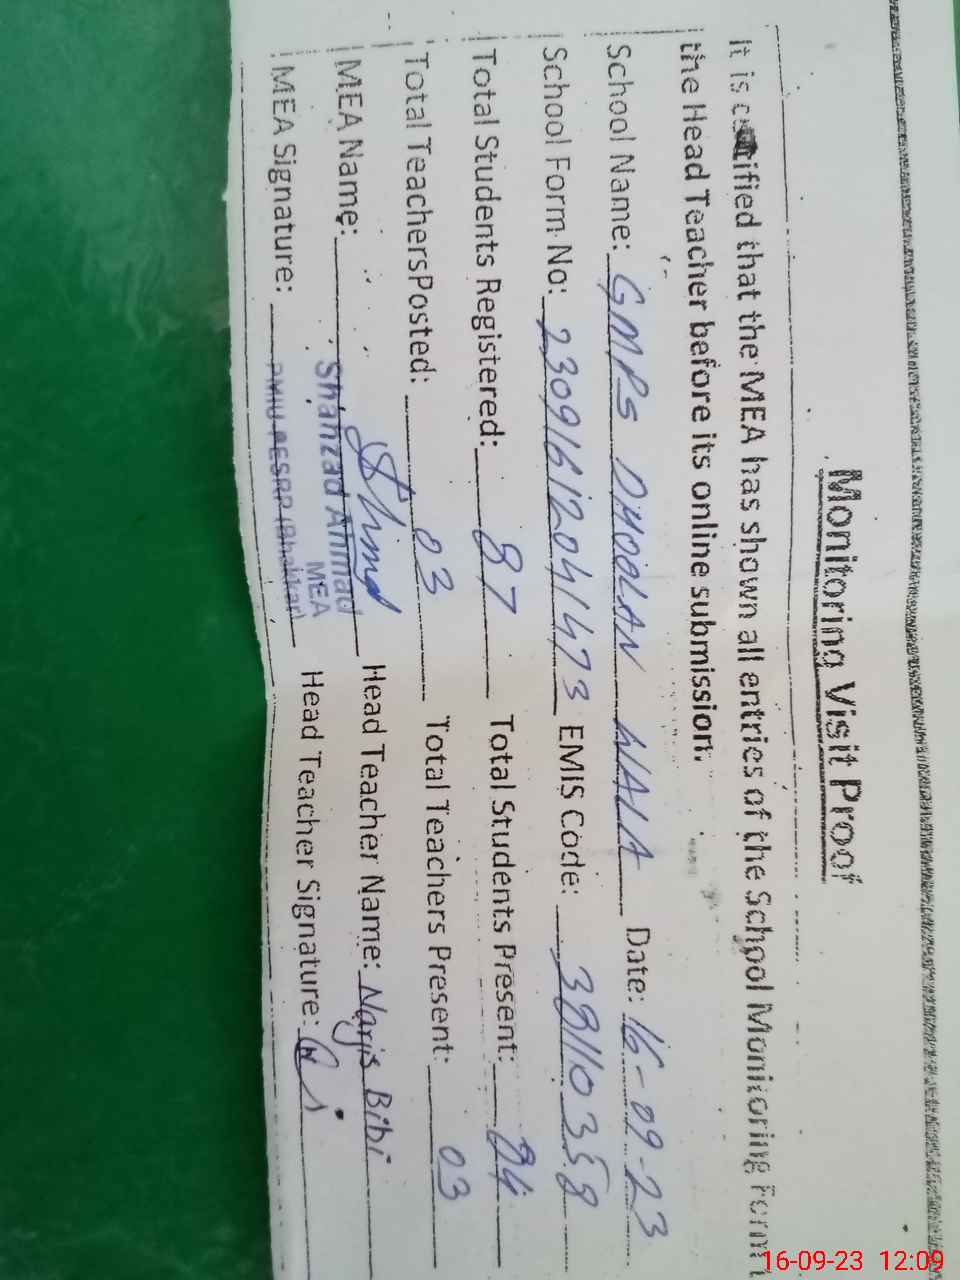 Monitoring Visit Proof
It is certified that the MEA has shown all entries of the School Monitoring Form
the Head Teacher before its online submission.
School Name: GMPS DHOOLAN WALA Date: 16-09-23
School Form No: 23091612041473 EMIS Code: 38110358
Total Students Registered: 87 Total Students Present: 84
Total TeachersPosted: 03 Total Teachers Present: 03
MEA Name: Shahzad Ahmad Head Teacher Name: Narjis Bibi
MEA
MEA Signature: PMIU-PESRP (Bhakkar) Head Teacher Signature:
16-09-23 12:09